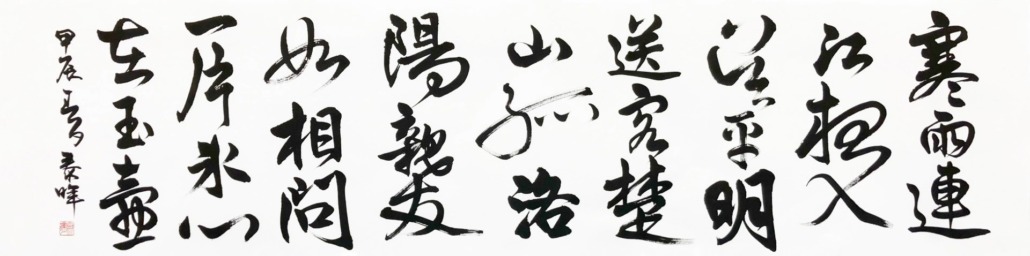 寒雨連
江夜入
吳平明
送客楚
山孤洛
陽親友
如相問
一片氷心
在玉壺
甲辰